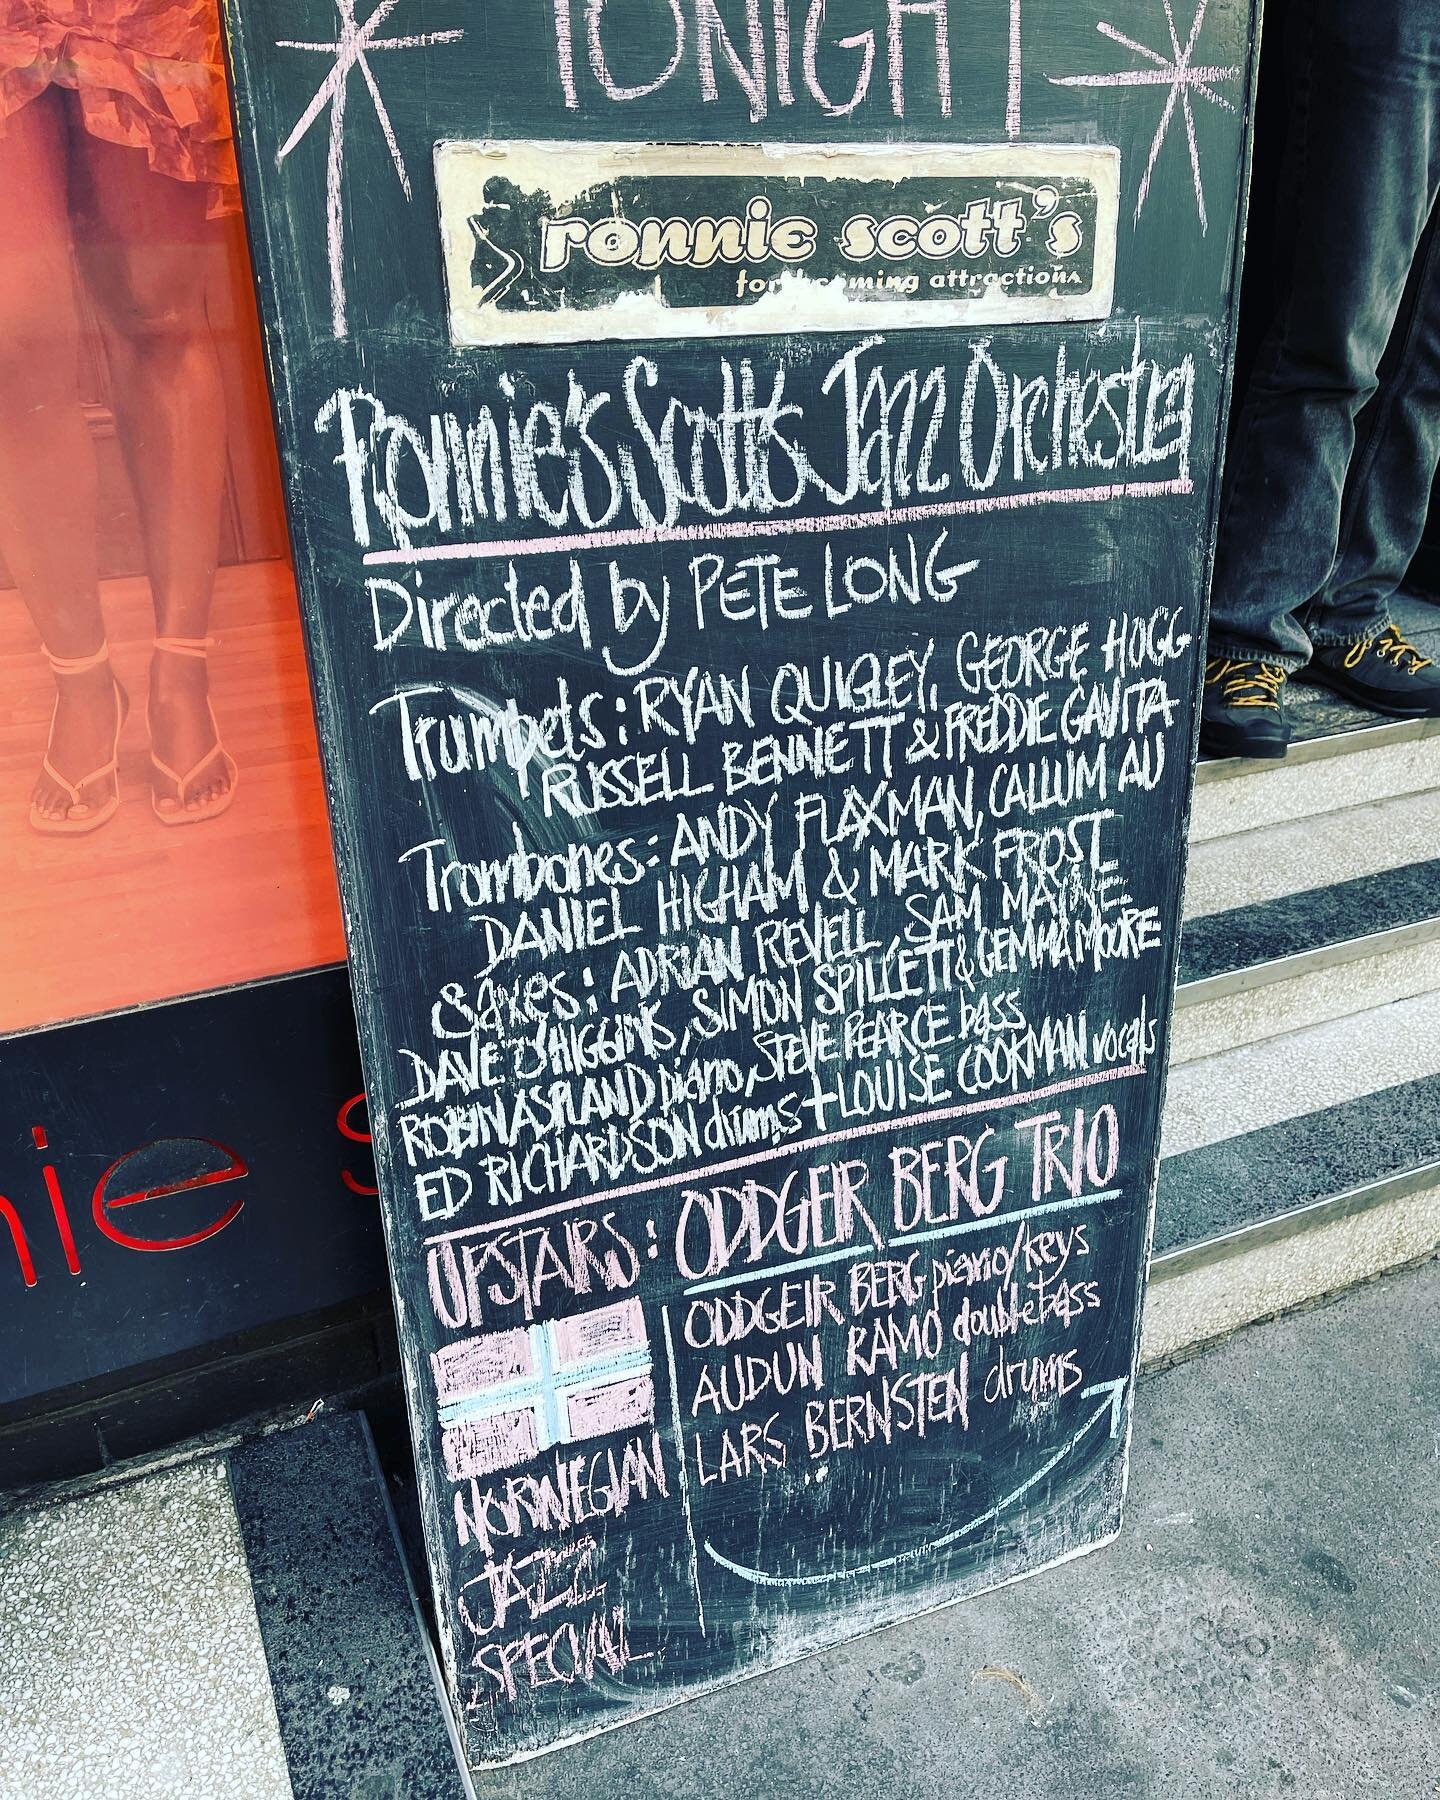 TONIGHT
ronnie scott's
forthcoming attractions
Ronnie's Scott's Jazz Orchestra
Directed by PETE LONG
Trumpets: RYAN QUIGLEY, GEORGE HOGG
RUSSELL BENNETT & FREDDIE GAVITA
Trombones: ANDY FLAXMAN, CALLUM AU
DANIEL HIGHAM & MARK FROST
Saxes: ADRIAN REVELL, SAM MAYNE
DAVE HIGGINS, SIMON SPILLETT & GEMMA MOORE
ROBIN ASPLAND piano, STEVE PEARCE bass
ED RICHARDSON drums + LOUISE COOKMAN vocals
UPSTAIRS: ODDGEIR BERG TRIO
ODDGEIR BERG piano/keys
AUDUN RAMO double bass
LARS BERNSTEN drums
NORWEGIAN
JAZZ
SPECIAL
nie s